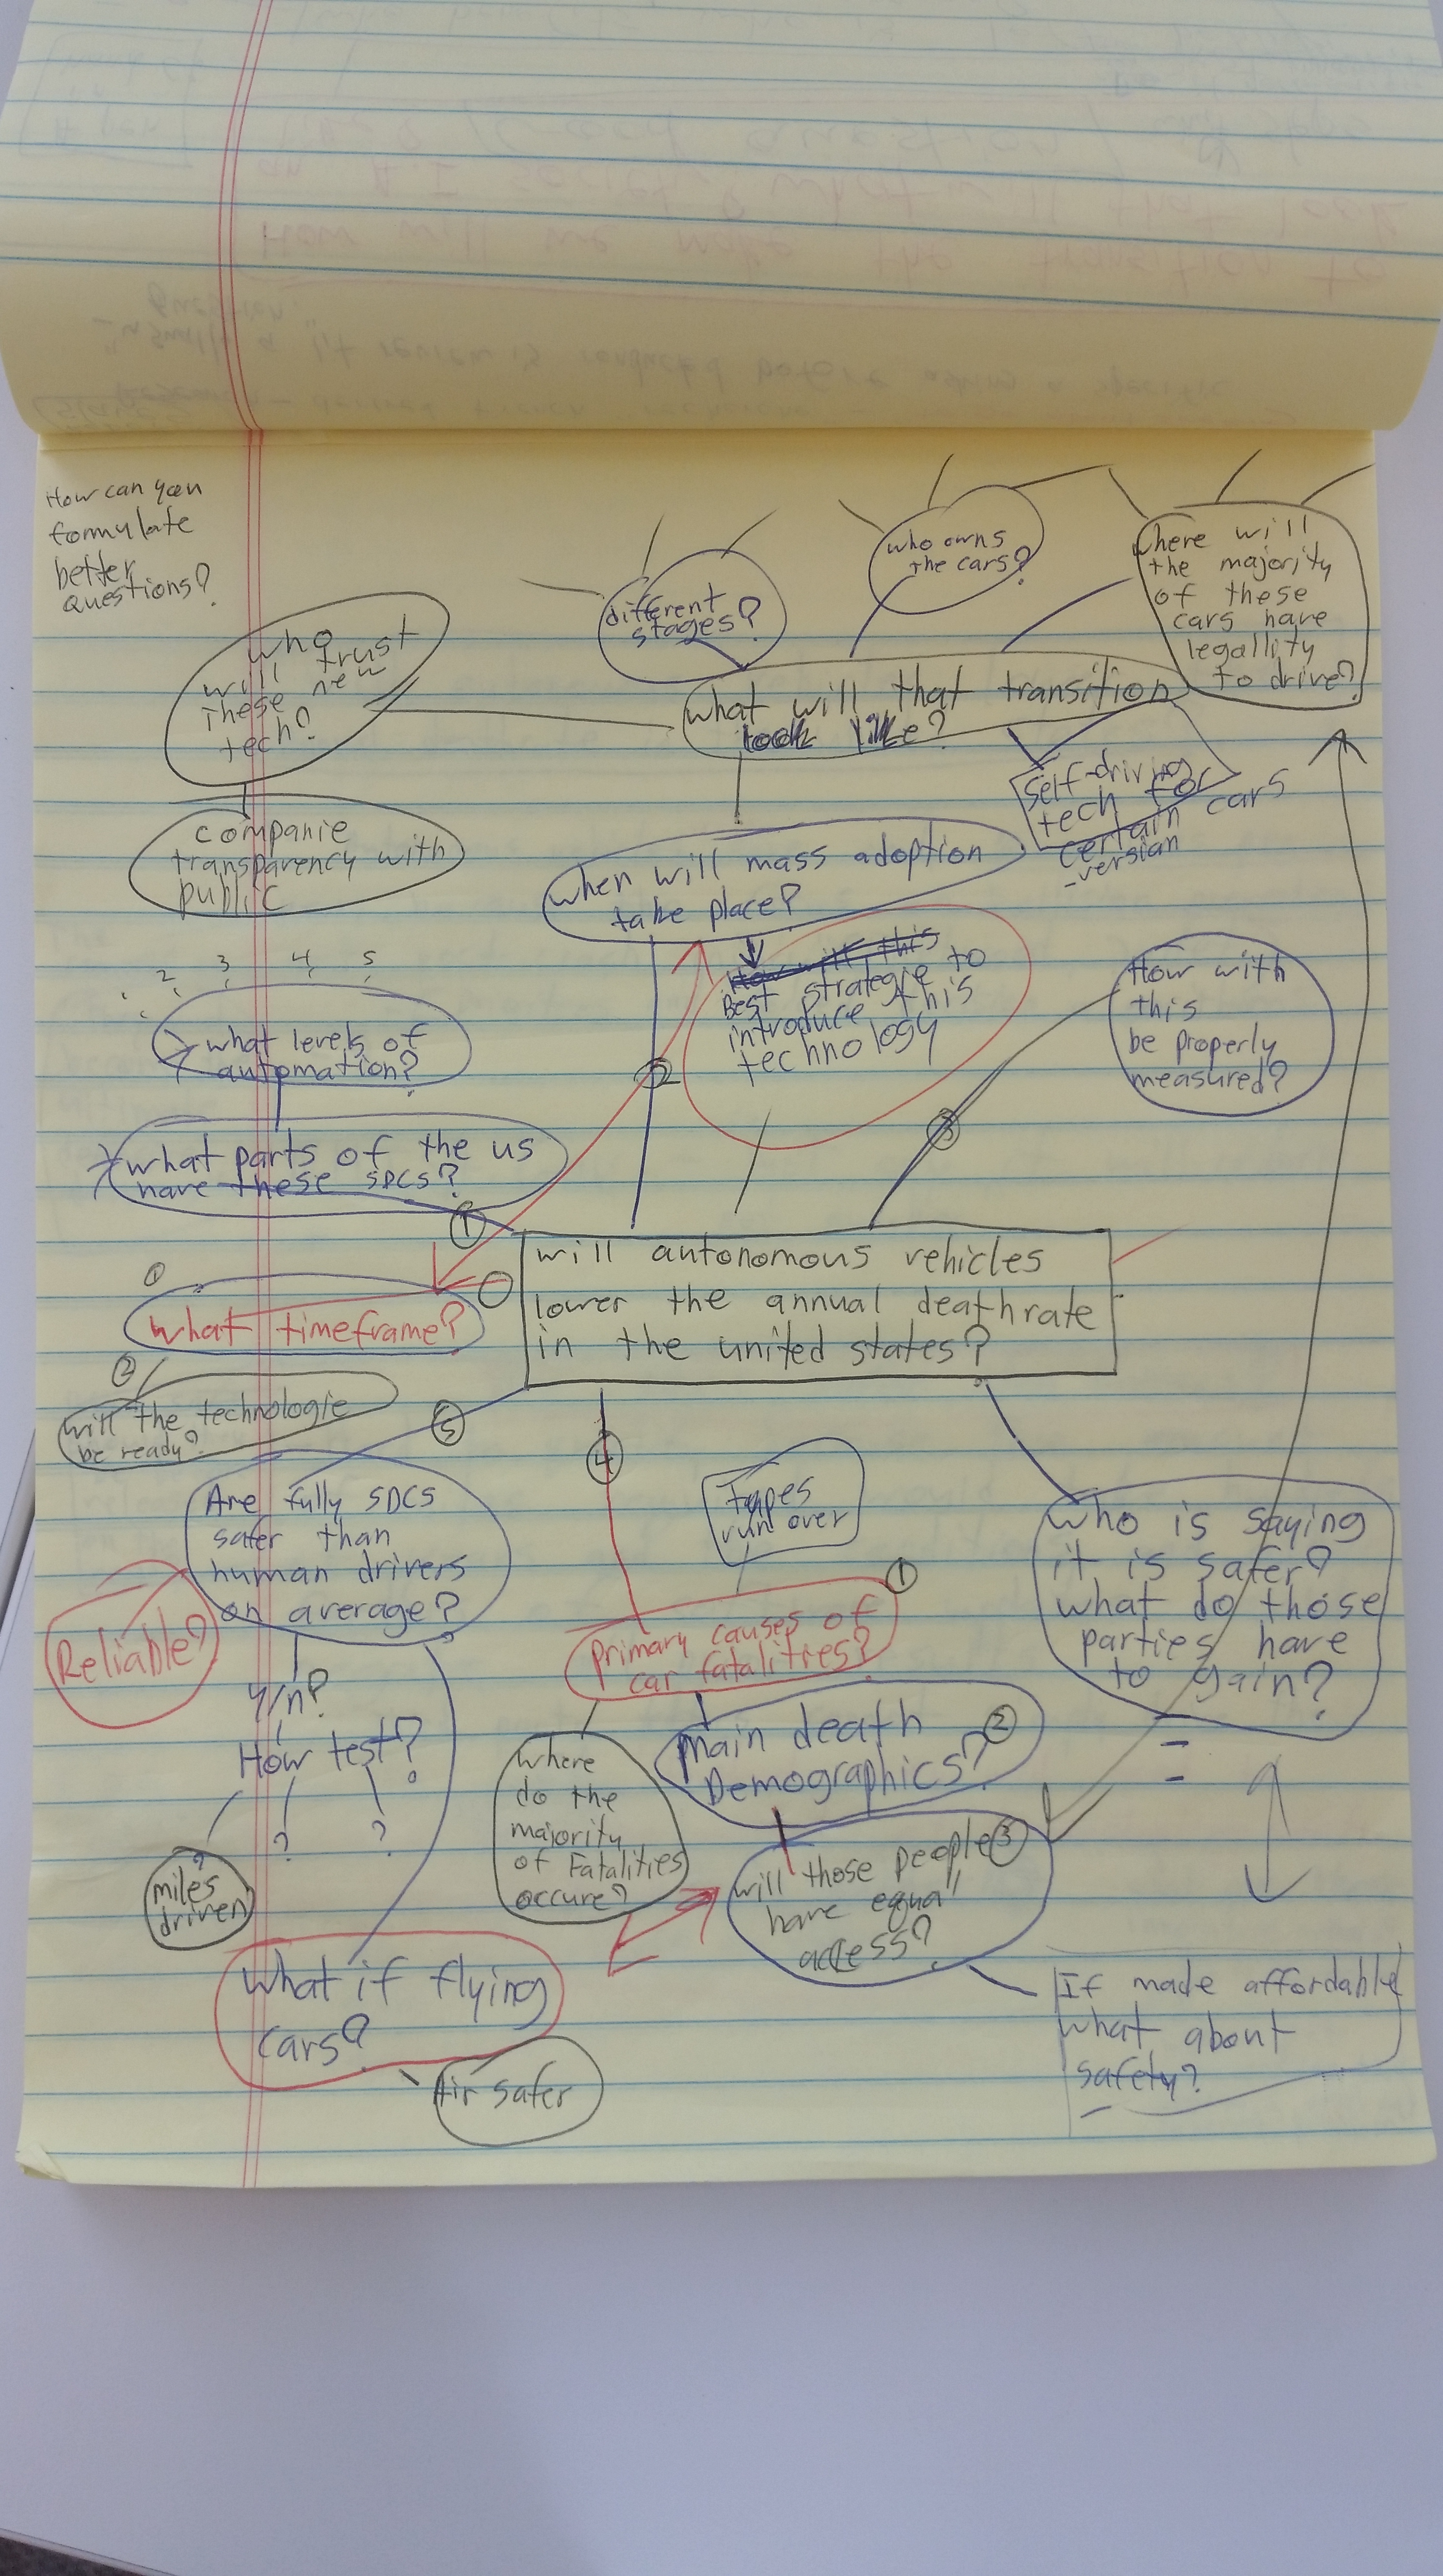 How can you
formulate
better
questions?
who
will trust
these new
tech?
companie
transparency with
public
different
stages?
who owns
the cars?
where will
the majority
of these
cars have
legallity
to drive?
what will that transition
look like?
self-driving
tech for
certain cars
-version
when will mass adoption
take place?
How will this
Best strategie to
introduce this
technology
How with
this
be properly
measured?
2 3 4 5
what levels of
automation?
what parts of the us
have these SDCS?
1
2
3
will autonomous vehicles
lower the annual deathrate
in the united states?
1
what timeframe?
2
will the technologie
be ready?
5
4
Are fully SDCS
safer than
human drivers
on average?
Reliable?
y/n?
How test?
? ? ?
miles
driven
run over
1
primary causes of
car fatalities?
who is saying
it is safer?
what do those
parties have
to gain?
main death 2
Demographics?
where
do the
majority
of Fatalities
occure?
will those people 3
have equal
access?
What if flying
cars?
Air safer
If made affordable
what about
safety?